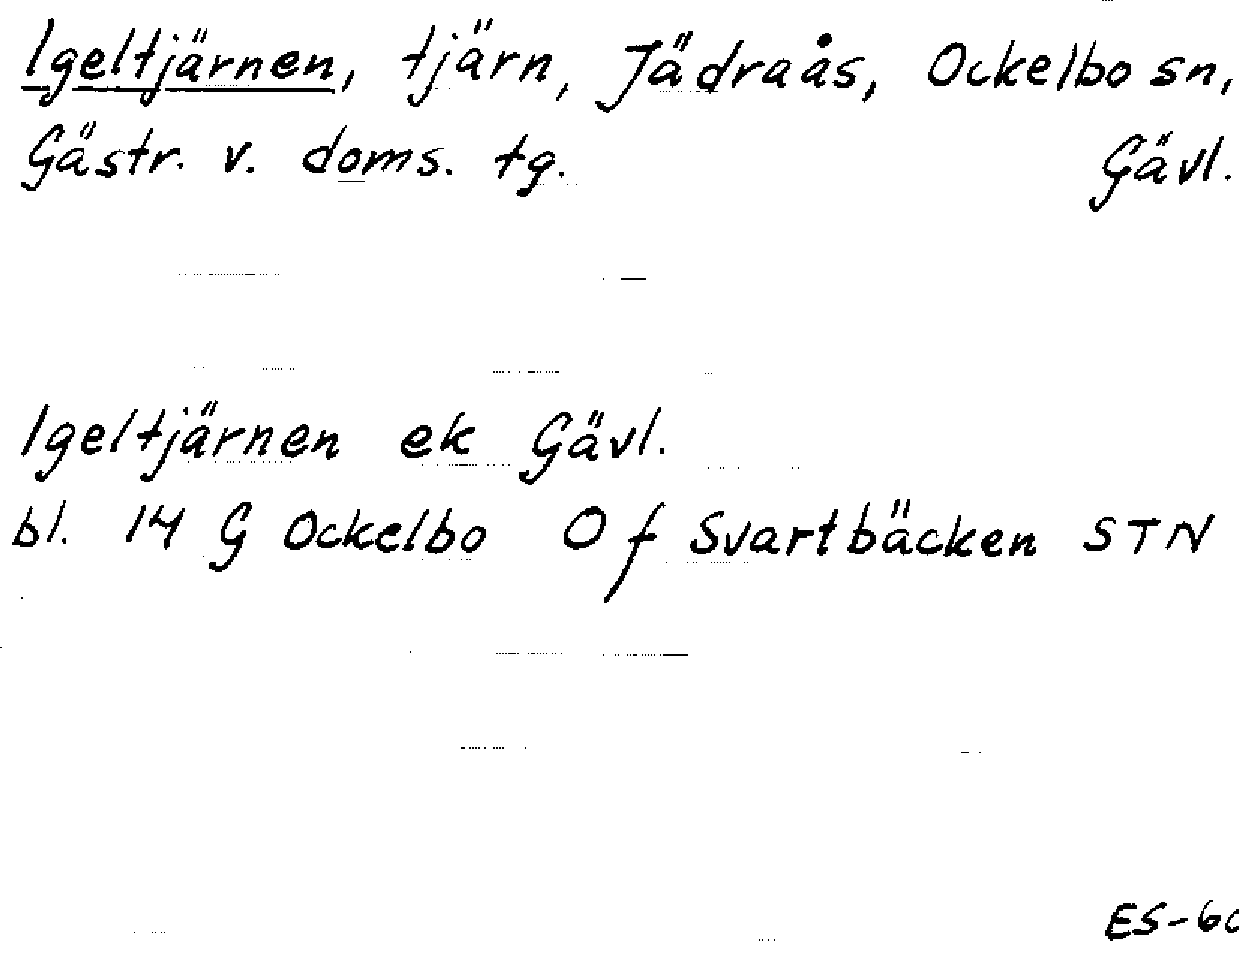 Igeltjärnen, tjärn, Jädraås, Ockelbo sn,
Gästr. v. doms. tg. Gävl.
Igeltjärnen ek Gävl.
bl. 14 G Ockelbo Of Svartbäcken STN
ES-60